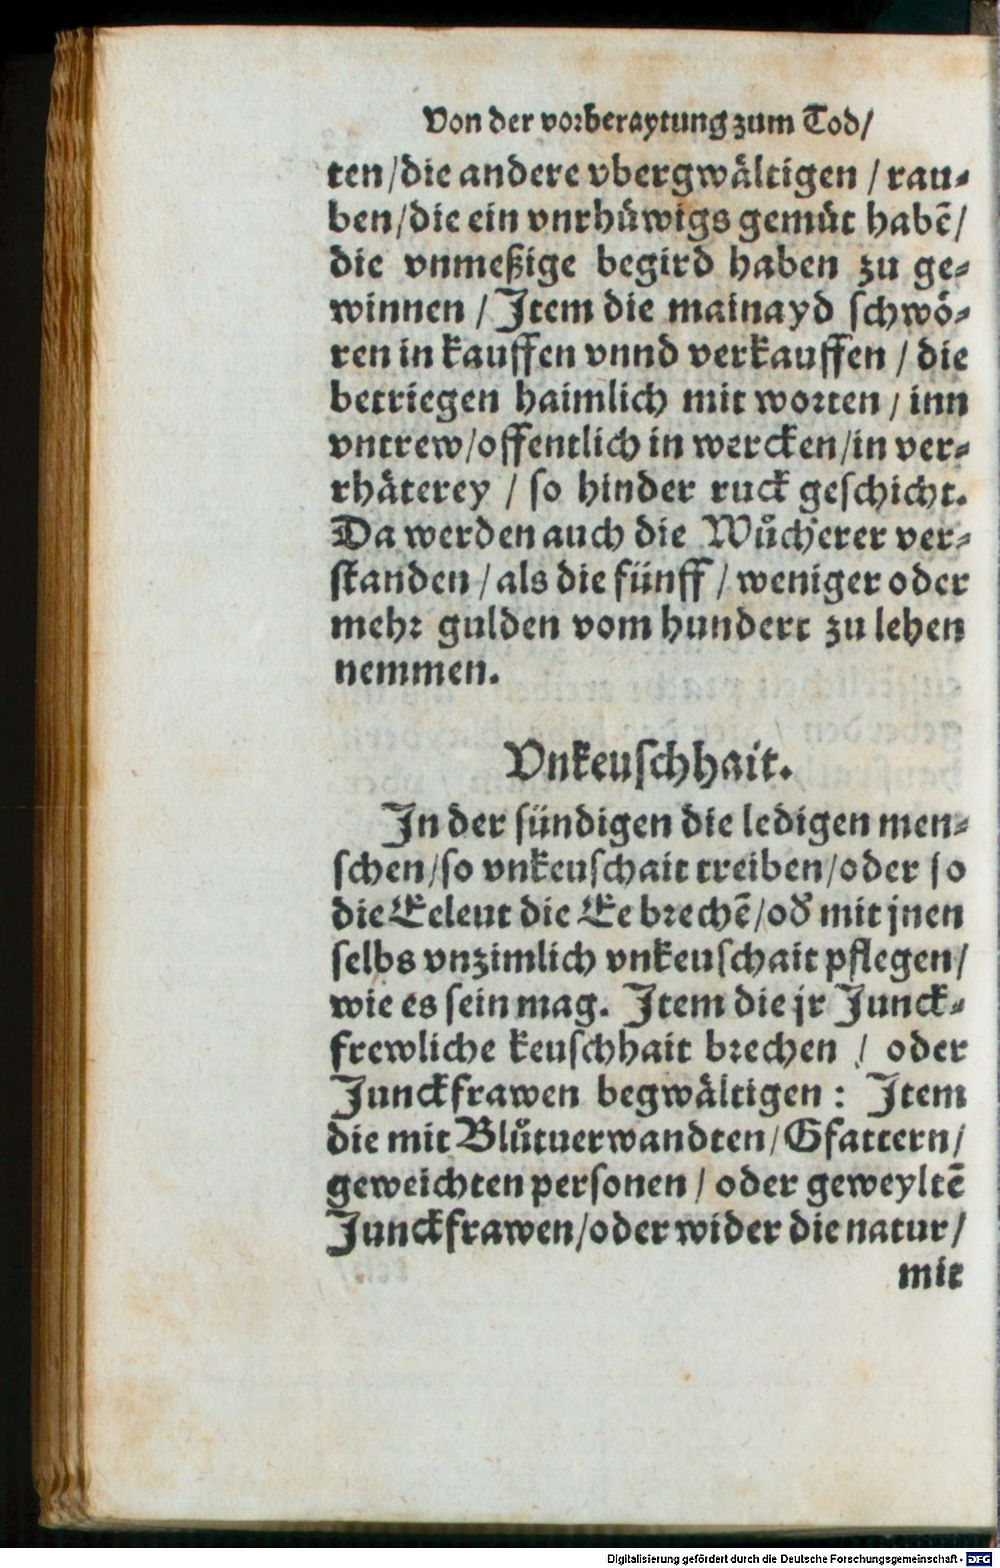 Von der vorberaytung zum Tod/
ten/die andere vbergwåltigen / rau⸗
ben/die ein vnrhůwigs gemůt habē/
die vnmeßige begird haben zu ge⸗
winnen / Item die mainayd schwö⸗
ren in kauffen vnnd verkauffen / die
betriegen haimlich mit worten / inn
vntrew/offentlich in wercken/in ver⸗
rhåterey / so hinder ruck geschicht.
Da werden auch die Wůcherer ver⸗
standen / als die fünff / weniger oder
mehr gulden vom hundert zu lehen
nemmen.
Vnkeuschhait.
In der sündigen die ledigen men⸗
schen/so vnkeuschait treiben/oder so
die Eeleut die Ee brechē/od' mit jnen
selbs vnzimlich vnkeuschait pflegen/
wie es sein mag. Item die jr Junck⸗
frewliche keuschhait brechen / oder
Junckfrawen begwåltigen : Item
die mit Blůtuerwandten/Gfattern/
geweichten personen / oder geweyltē
Junckfrawen/oder wider die natur/
mit
Digitalisierung gefördert durch die Deutsche Forschungsgemeinschaft - DFG